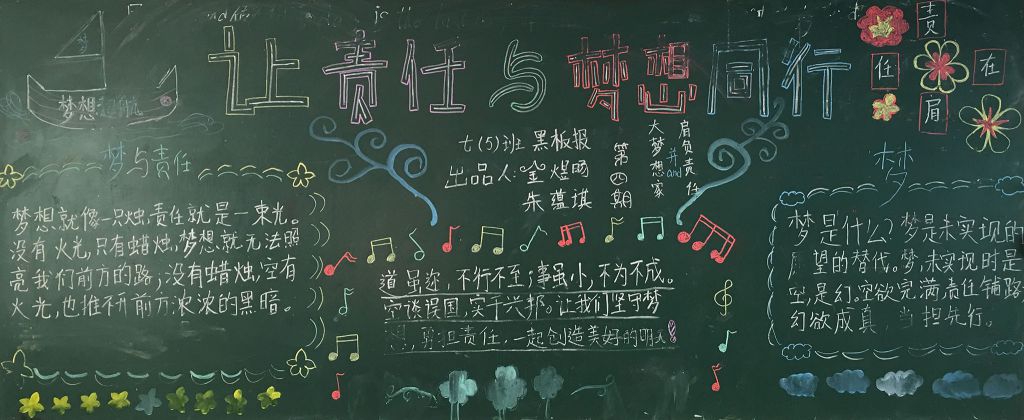 让责任与梦想同行
责
任
在
肩
梦
梦想起航
七(5)班 黑板报
出品人:金煜旸
朱蕴琪
第四期
大梦想家
并
and
肩负责任
梦与责任
梦想就像一只烛,责任就是一束光。
没有火光,只有蜡烛,梦想就无法照
亮我们前方的路;没有蜡烛,空有
火光,也推不开前方浓浓的黑暗。
道虽迩,不行不至;事虽小,不为不成。
空谈误国,实干兴邦。让我们坚守梦
想,勇担责任,一起创造美好的明天!
梦
梦是什么?梦是未实现的
愿望的替代。梦,未实现时是
空,是幻。空欲完满,责任铺路
幻欲成真,当担先行。